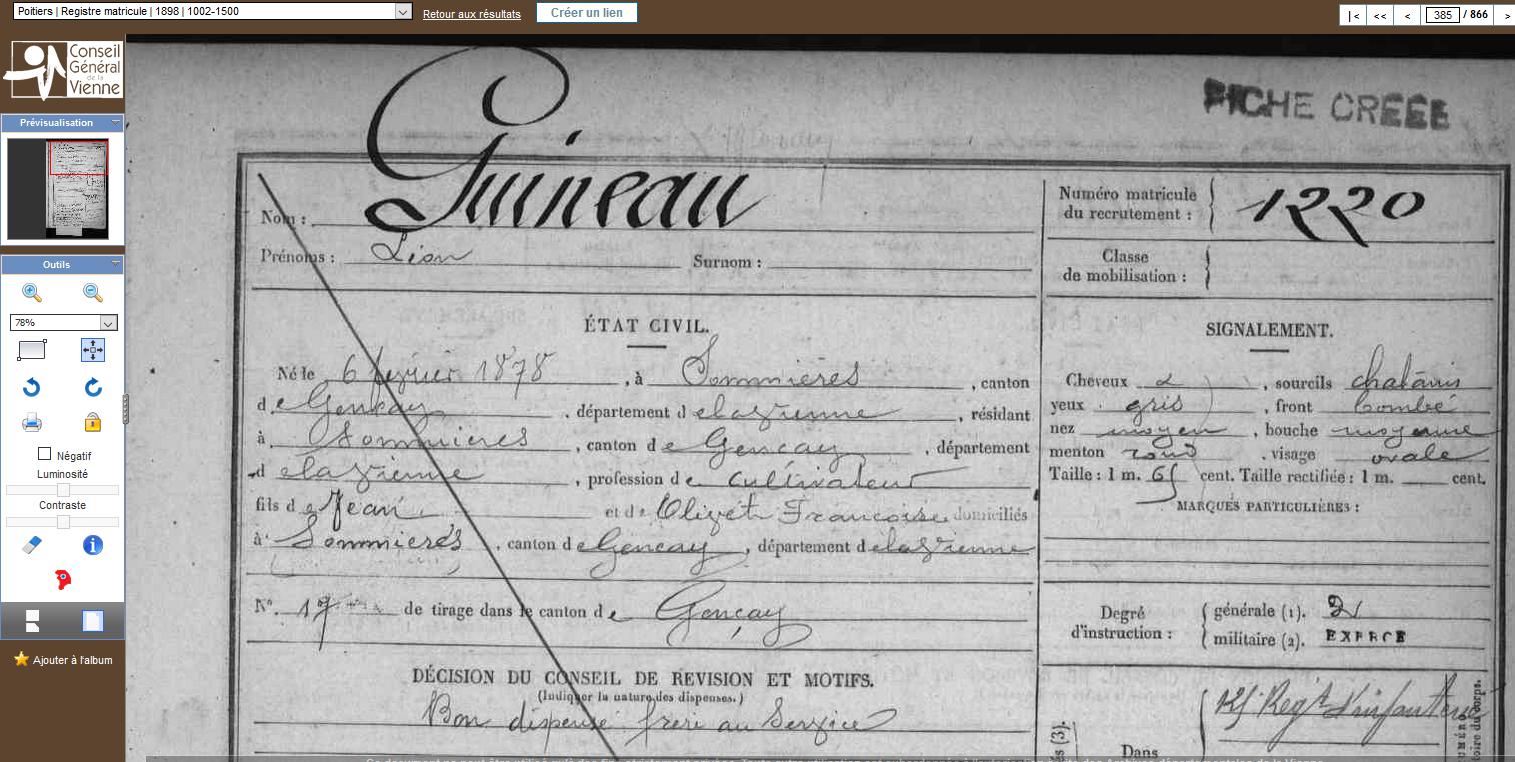 Poitiers | Registre matricule | 1898 | 1002-1500
Retour aux résultats
Créer un lien
|<
<<
<
385 / 866
>
Conseil
Général
de la
Vienne
Prévisualisation
Outils
78%
Négatif
Luminosité
Contraste
Ajouter à l'album
FICHE CRÉÉE
Nom : Guineau
Prénoms : Léon Surnom :
Numéro matricule
du recrutement : 1220
Classe
de mobilisation :
ÉTAT CIVIL.
Né le 6 février 1878, à Sommières, canton
de Gençay, département de la Vienne, résidant
à Sommières, canton de Gençay, département
de la Vienne, profession de cultivateur
fils de Jean et de Françoise domiciliés
à Sommières, canton de Gençay, département de la Vienne
N° de tirage dans le canton de Gençay
DÉCISION DU CONSEIL DE REVISION ET MOTIFS.
(Indiquer la nature des dispenses.)
Bon dispensé frère au Service
SIGNALEMENT.
Cheveux et, sourcils chatains
yeux gris, front bombé
nez moyen, bouche moyenne
menton rond, visage ovale
Taille : 1 m. 65 cent. Taille rectifiée : 1 m. cent.
MARQUES PARTICULIÈRES :
Degré
d'instruction :
générale (1). 2
militaire (2). EXERCÉ
Regt d'infanterie
(3).
Dans